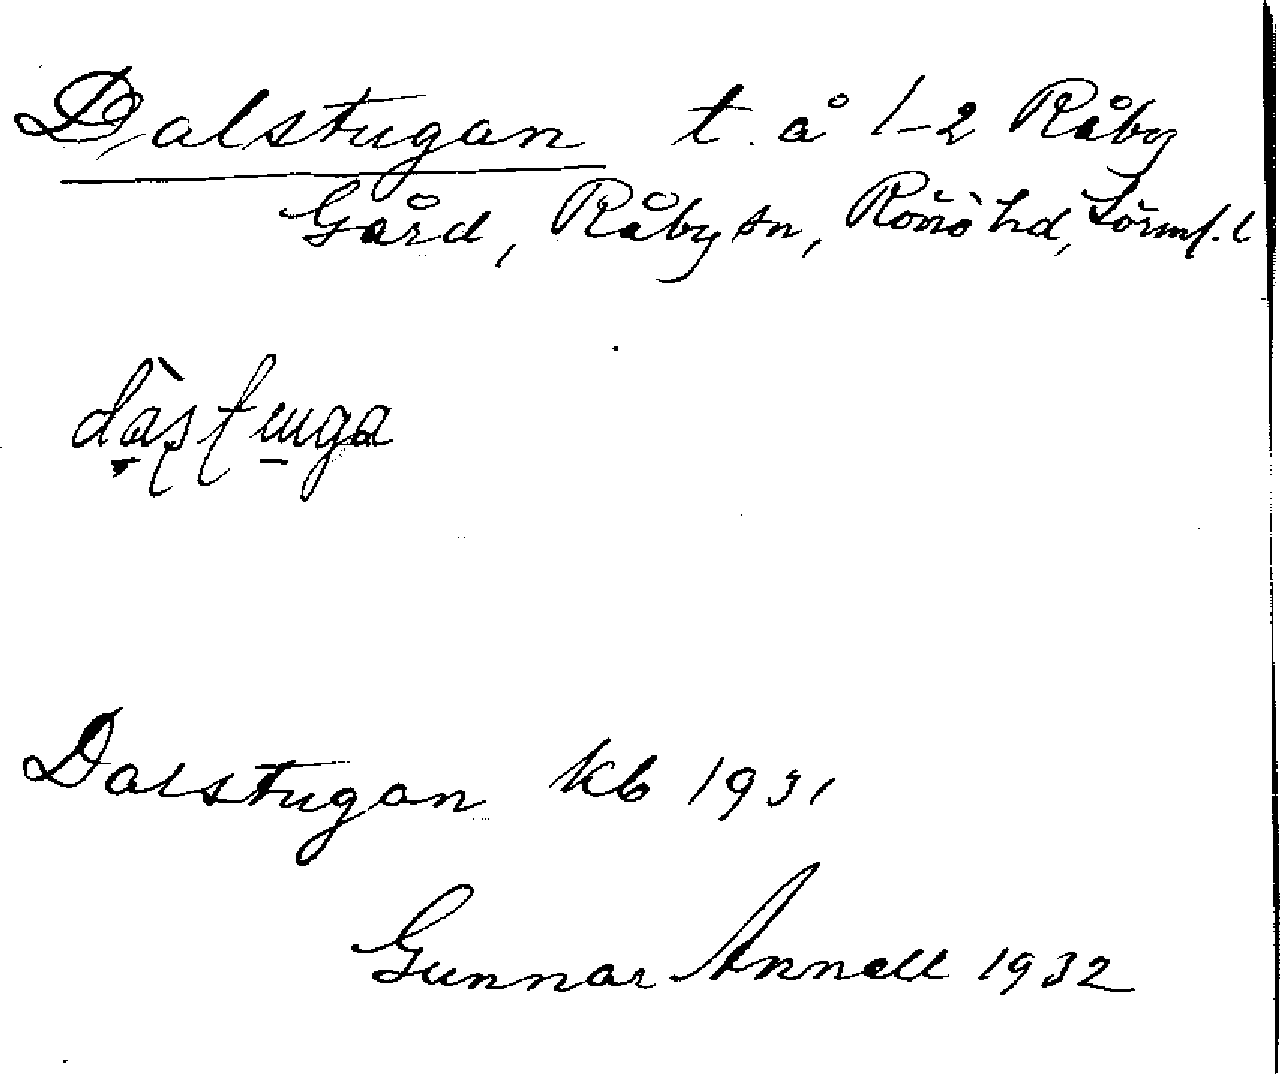 Dalstugan t. å 1-2 Råby
Gård, Råby sn, Rönö hd, Sörml. l
Dalstugan kb 1931
Gunnar Annell 1932